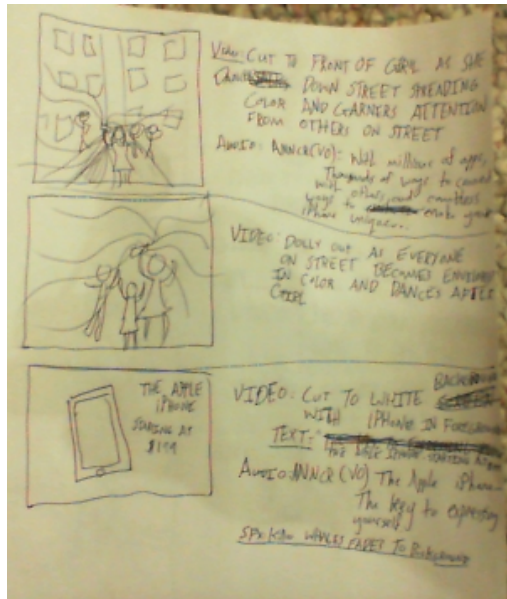 Video: CUT TO FRONT OF GIRL AS SHE
DOWN STREET SPREADING
COLOR AND GARNERS ATTENTION
FROM OTHERS ON STREET
AUDIO: ANNCR(VO): With millions of apps,
Thousands of ways to connect
with others, and countless
ways to make your
iPhone unique...
VIDEO: DOLLY OUT AS EVERYONE
ON STREET BECOMES
IN COLOR AND DANCES AFTER
GIRL
THE APPLE
IPHONE
STARING AT
$199
VIDEO: CUT TO WHITE BACKGROUND
WITH IPHONE IN FOREGROUND
TEXT:
THE APPLE IPHONE. STARTING AT
AUDIO: ANNCR (VO) The Apple iPhone...
The key to expressing
yourself
SFX: FADES TO